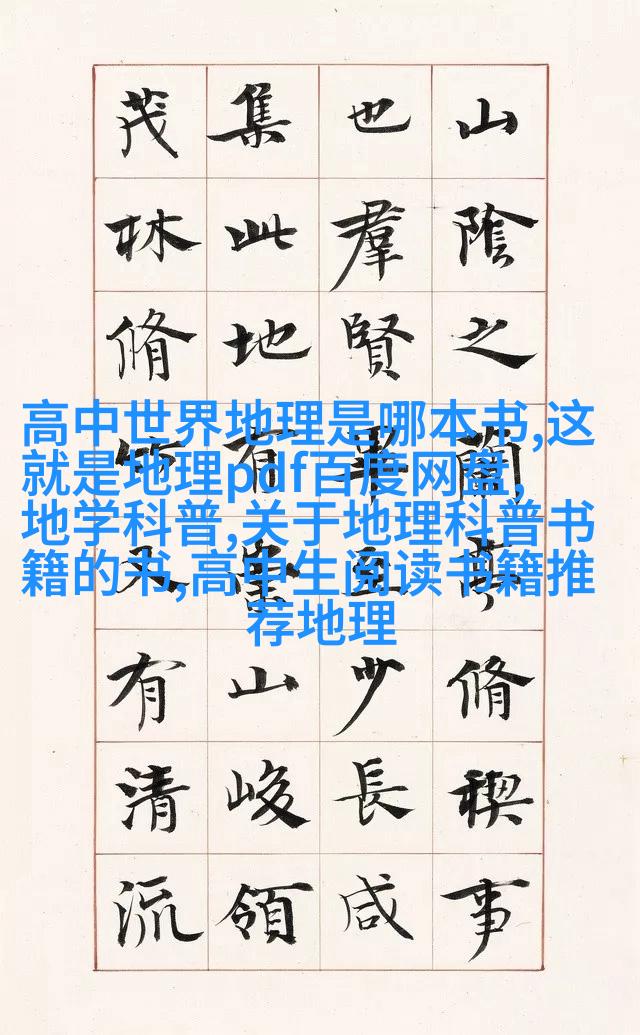 山陰之蘭亭脩禊事
也羣賢畢至少長咸
集此地有崇山峻領
茂林脩竹又有清流
高中世界地理是哪本书,这
就是地理pdf百度网盘,
地学科普,关于地理科普书
籍的书,高中生阅读书籍推
荐地理